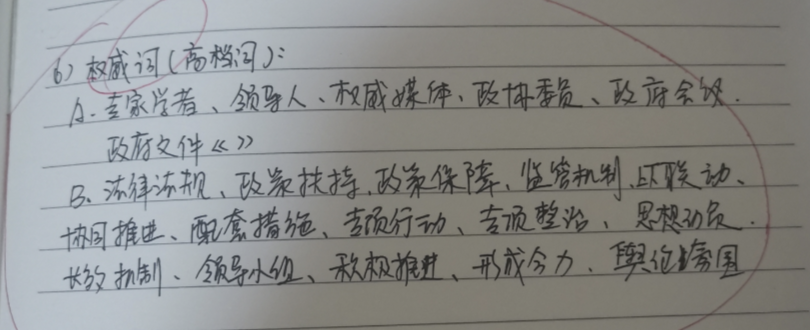 6）权威词（高档词）：
A. 专家学者、领导人、权威媒体、政协委员、政府会议、
政府文件《 》
B、法律法规、政策扶持、政策保障、监管机制、上下联动、
协同推进、配套措施、专项行动、专项整治、思想动员、
长效机制、领导小组、积极推进、形成合力、舆论氛围